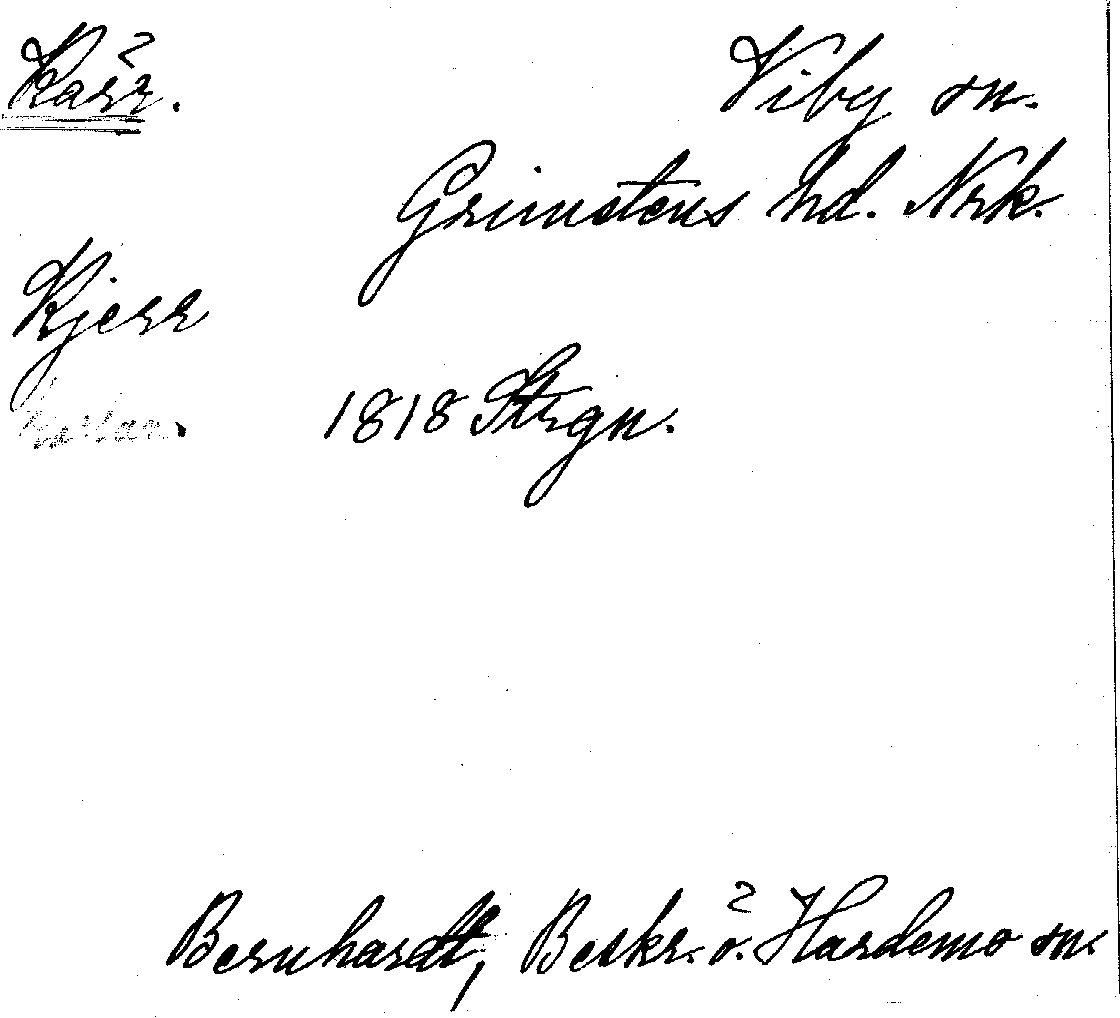 Kärr. Viby sn.
Grimstens hd. Nrk.
Kjerr
1818 Strgn.
Bernhardt, Beskr. ö. Hardemo sn.